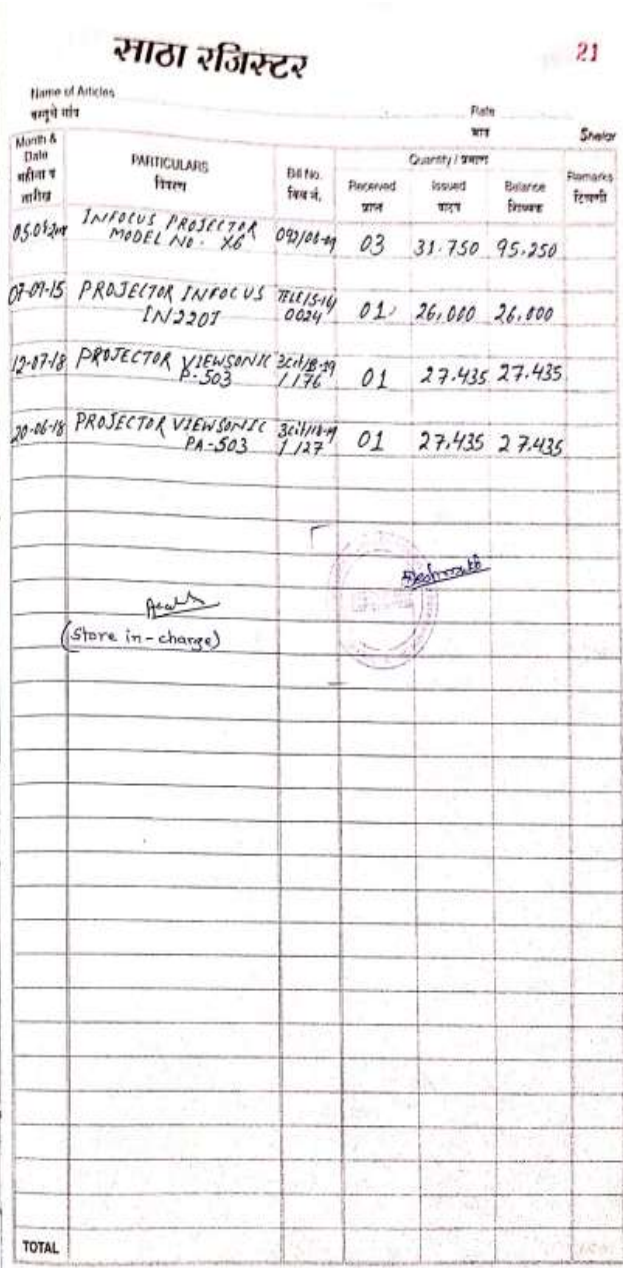 साठा रजिस्टर
21
Name of Articles
वस्तुचे नांव
Rate
भाव
Shelar
Month & Date
महीना व तारीख
PARTICULARS
विवरण
Bill No.
बिल नं.
Quantity / प्रमाण
Received
प्राप्त
Issued
वाटप
Balance
शिल्लक
Remarks
टिपणी
INFOCUS PROJECTOR
MODEL NO. X6 03 31.750 95,250
07-09-15 PROJECTOR INFOCUS TELE/15-16/
IN220I 0024 01 26,000 26,000
12-07-18 PROJECTOR VIEWSONIC 3cit/18-19
P-503 / 176 01 27.435 27.435
20-06-18 PROJECTOR VIEWSONIC 3cit/18-19
PA-503 / 127 01 27,435 27,435
Deshmukh
(Store in-charge)
TOTAL